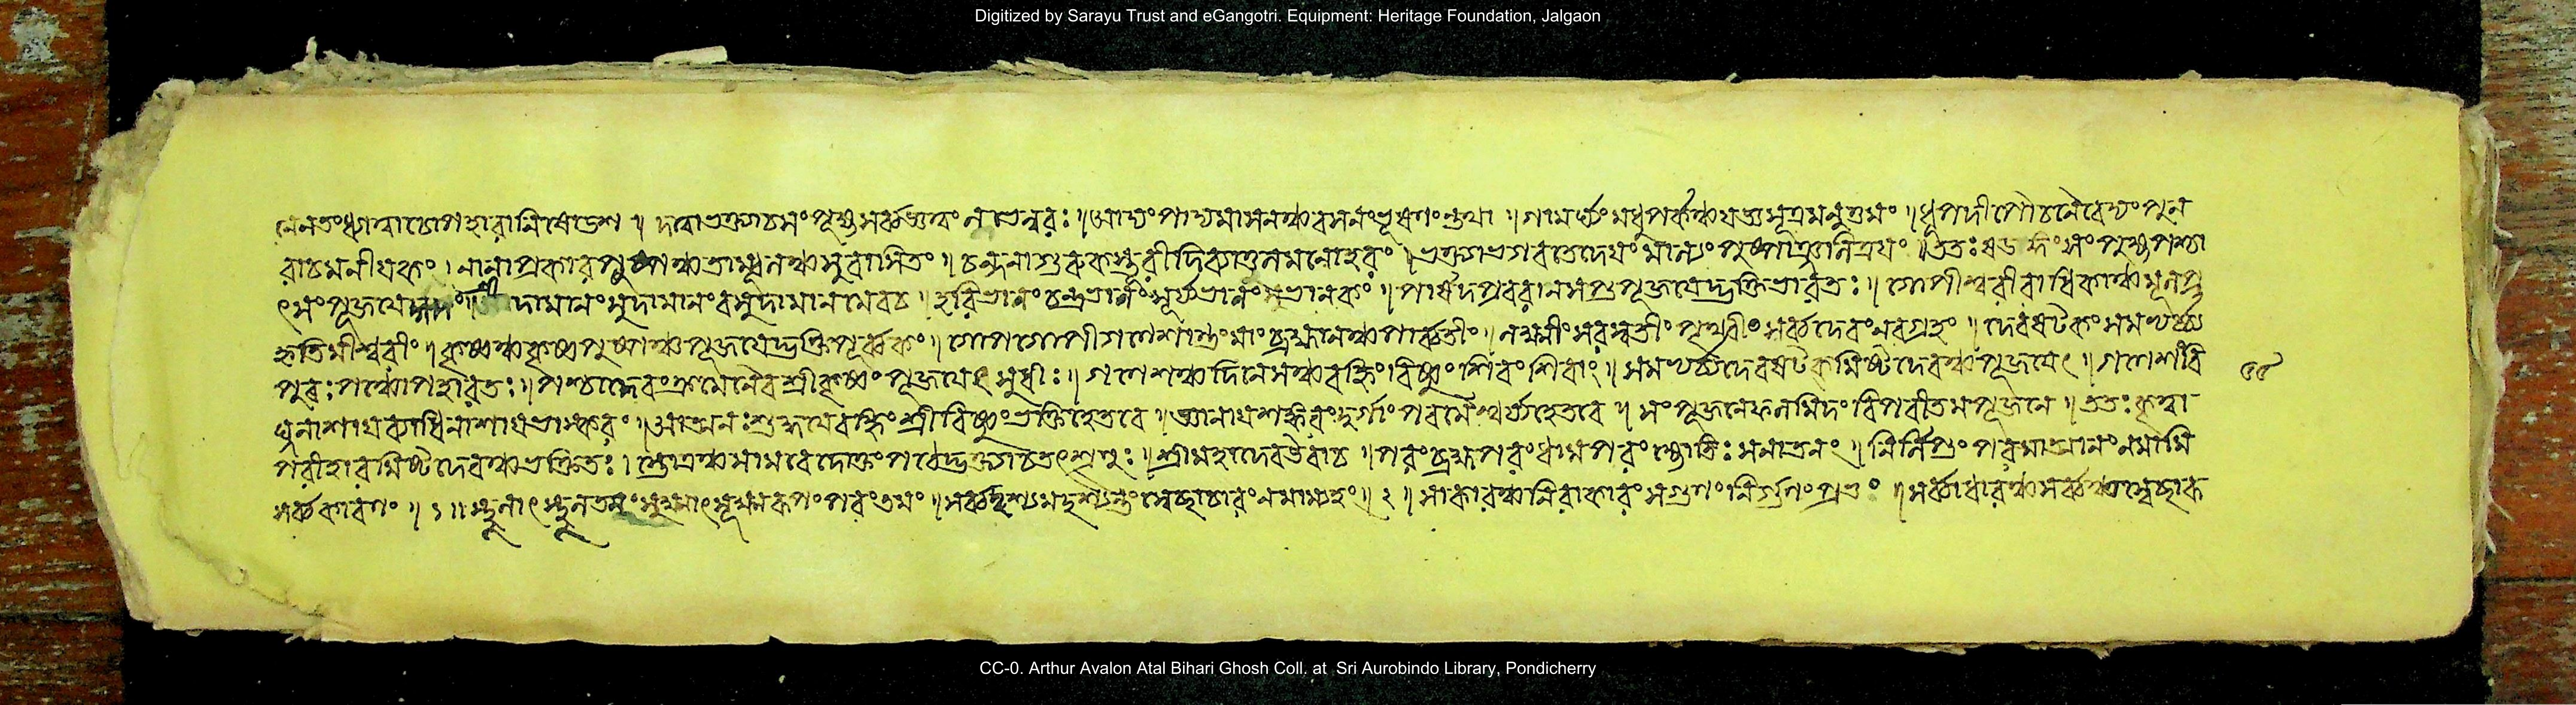 Digitized by Sarayu Trust and eGangotri. Equipment: Heritage Foundation, Jalgaon
দদ্যাদ্ভক্ত্যাচসংপূজ্য নরঃ॥আদ্যংপাদ্যমাসনঞ্চবসনংভূষণংতথা॥গামর্ঘ্যংমধুপর্কঞ্চযজ্ঞসূত্রমনুত্তমং॥ধূপদীপৌচনৈবেদ্যংপুন
রাচমনীয়কং।নানাপ্রকারপুষ্পঞ্চতাম্বূলঞ্চসুবাসিতং॥চন্দনাগুরুকস্তূরী মনোহরং॥ভক্ত্যাভগবতেদেয়ংমাল্যংপুষ্পাঞ্জলিত্রয়ং॥ততঃষডঙ্গংসংপূজ্যপশ্চা
ৎসংপূজয়ে দামানংসুদামানংবসুদামানমেবচ॥হরিভানুংচন্দ্রভানুংসূর্যভানুংসুভানুকং॥পার্ষদপ্রবরান্সপ্তপূজয়েদ্ভক্তিভাবতঃ॥গোপীশ্বরীংরাধিকাঞ্চমূলপ্র
কৃতিমীশ্বরীং॥কৃষ্ণঞ্চকৃষ্ণ পূজয়েদ্ভক্তিপূর্ব্বকং॥গোপগোপীগণংশান্তংমাংব্রহ্মাণঞ্চপার্ব্বতীং॥লক্ষ্মীংসরস্বতীংপৃথ্বীংসর্ব্বদেবংনবগ্রহং॥দেবষট্কংসমভ্যর্চ্চ্য
পুনঃপঞ্চোপচারতঃ॥পশ্চাদেবংক্রমেণৈবশ্রীকৃষ্ণংপূজয়েৎসুধীঃ॥গণেশঞ্চদিনেশঞ্চবহ্নিংবিষ্ণুংশিবংশিবাং॥সমভ্যর্চ্চ্যদেবষট্কমিষ্টদেবঞ্চপূজয়েৎ॥গণেশংবি
ঘ্ননাশায়ব্যাধিনাশায়ভাস্করং॥আত্মনঃশুদ্ধয়েবহ্নিংশ্রীবিষ্ণুংভক্তিহেতবে॥জ্ঞানায়শঙ্করংদুর্গাংপরমৈশ্বর্য্যহেতবে॥সংপূজনেফলমিদংবিপরীতমপূজনে॥ততঃকৃত্বা
পরীহারমিষ্টদেবঞ্চভক্তিতঃ।স্তোত্রঞ্চসামবেদোক্তংপঠেদ্ভক্ত্যাচতৎশৃণু॥শ্রীমহাদেবউবাচ॥পরংব্রহ্মপরংধামপরংজ্যোতিঃসনাতনং॥নির্লিপ্তংপরমাত্মানংনমামি
সর্ব্বকারণং॥১॥স্থূলাৎস্থূলতমংসূক্ষ্মাৎসূক্ষ্মতমংপরং সর্ব্বদৃশ্যমদৃশ্যঞ্চস্বেচ্ছাচারংনমাম্যহং॥২॥সাকারঞ্চনিরাকারংসগুণংনির্গুণংপ্রভুং॥সর্ব্বাধারঞ্চসর্ব্বঞ্চস্বেচ্ছারূ
CC-0. Arthur Avalon Atal Bihari Ghosh Coll. at Sri Aurobindo Library, Pondicherry